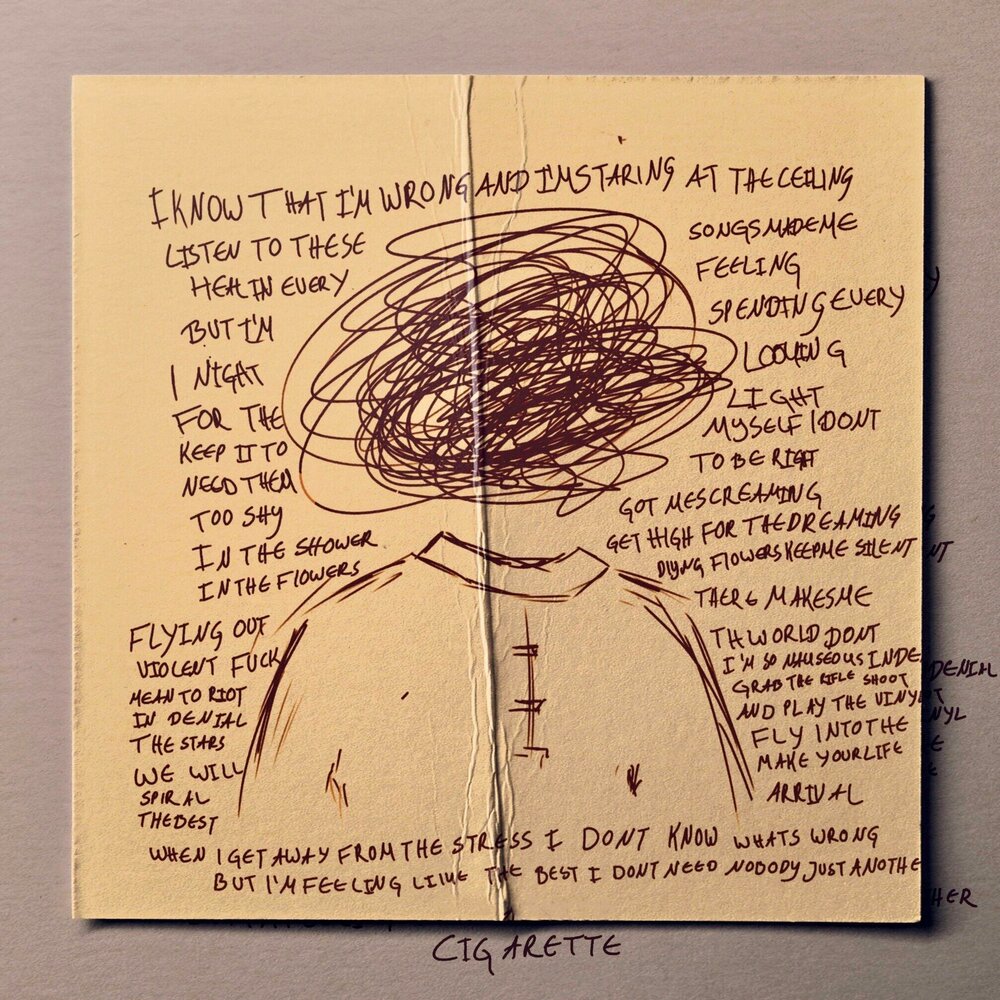 I KNOW THAT I'M WRONG AND I'M STARING AT THE CEILING
LISTEN TO THESE SONGS MADE ME
HEAL IN EVERY FEELING
BUT I'M SPENDING EVERY
I NIGHT LOOKING
FOR THE LIGHT
KEEP IT TO MYSELF I DONT
NEED THEM TO BE RIGHT
TOO SHY GOT ME SCREAMING
IN THE SHOWER GET HIGH FOR THE DREAMING
IN THE FLOWERS DIYNG FLOWERS KEEP ME SILENT
FLYING OUT THERE MAKES ME
VIOLENT FUCK TH WORLD DONT
MEAN TO RIOT I'M SO NAUSEOUS INDE DENIAL
IN DENIAL GRAB THE RIFLE SHOOT
THE STARS AND PLAY THE VINYL
WE WILL FLY INTO THE
SPIRAL MAKE YOUR LIFE
THE BEST ARRIVAL
WHEN I GET AWAY FROM THE STRESS I DONT KNOW WHATS WRONG
BUT I'M FEELING LIKE THE BEST I DONT NEED NOBODY JUST ANOTHER
CIGARETTE